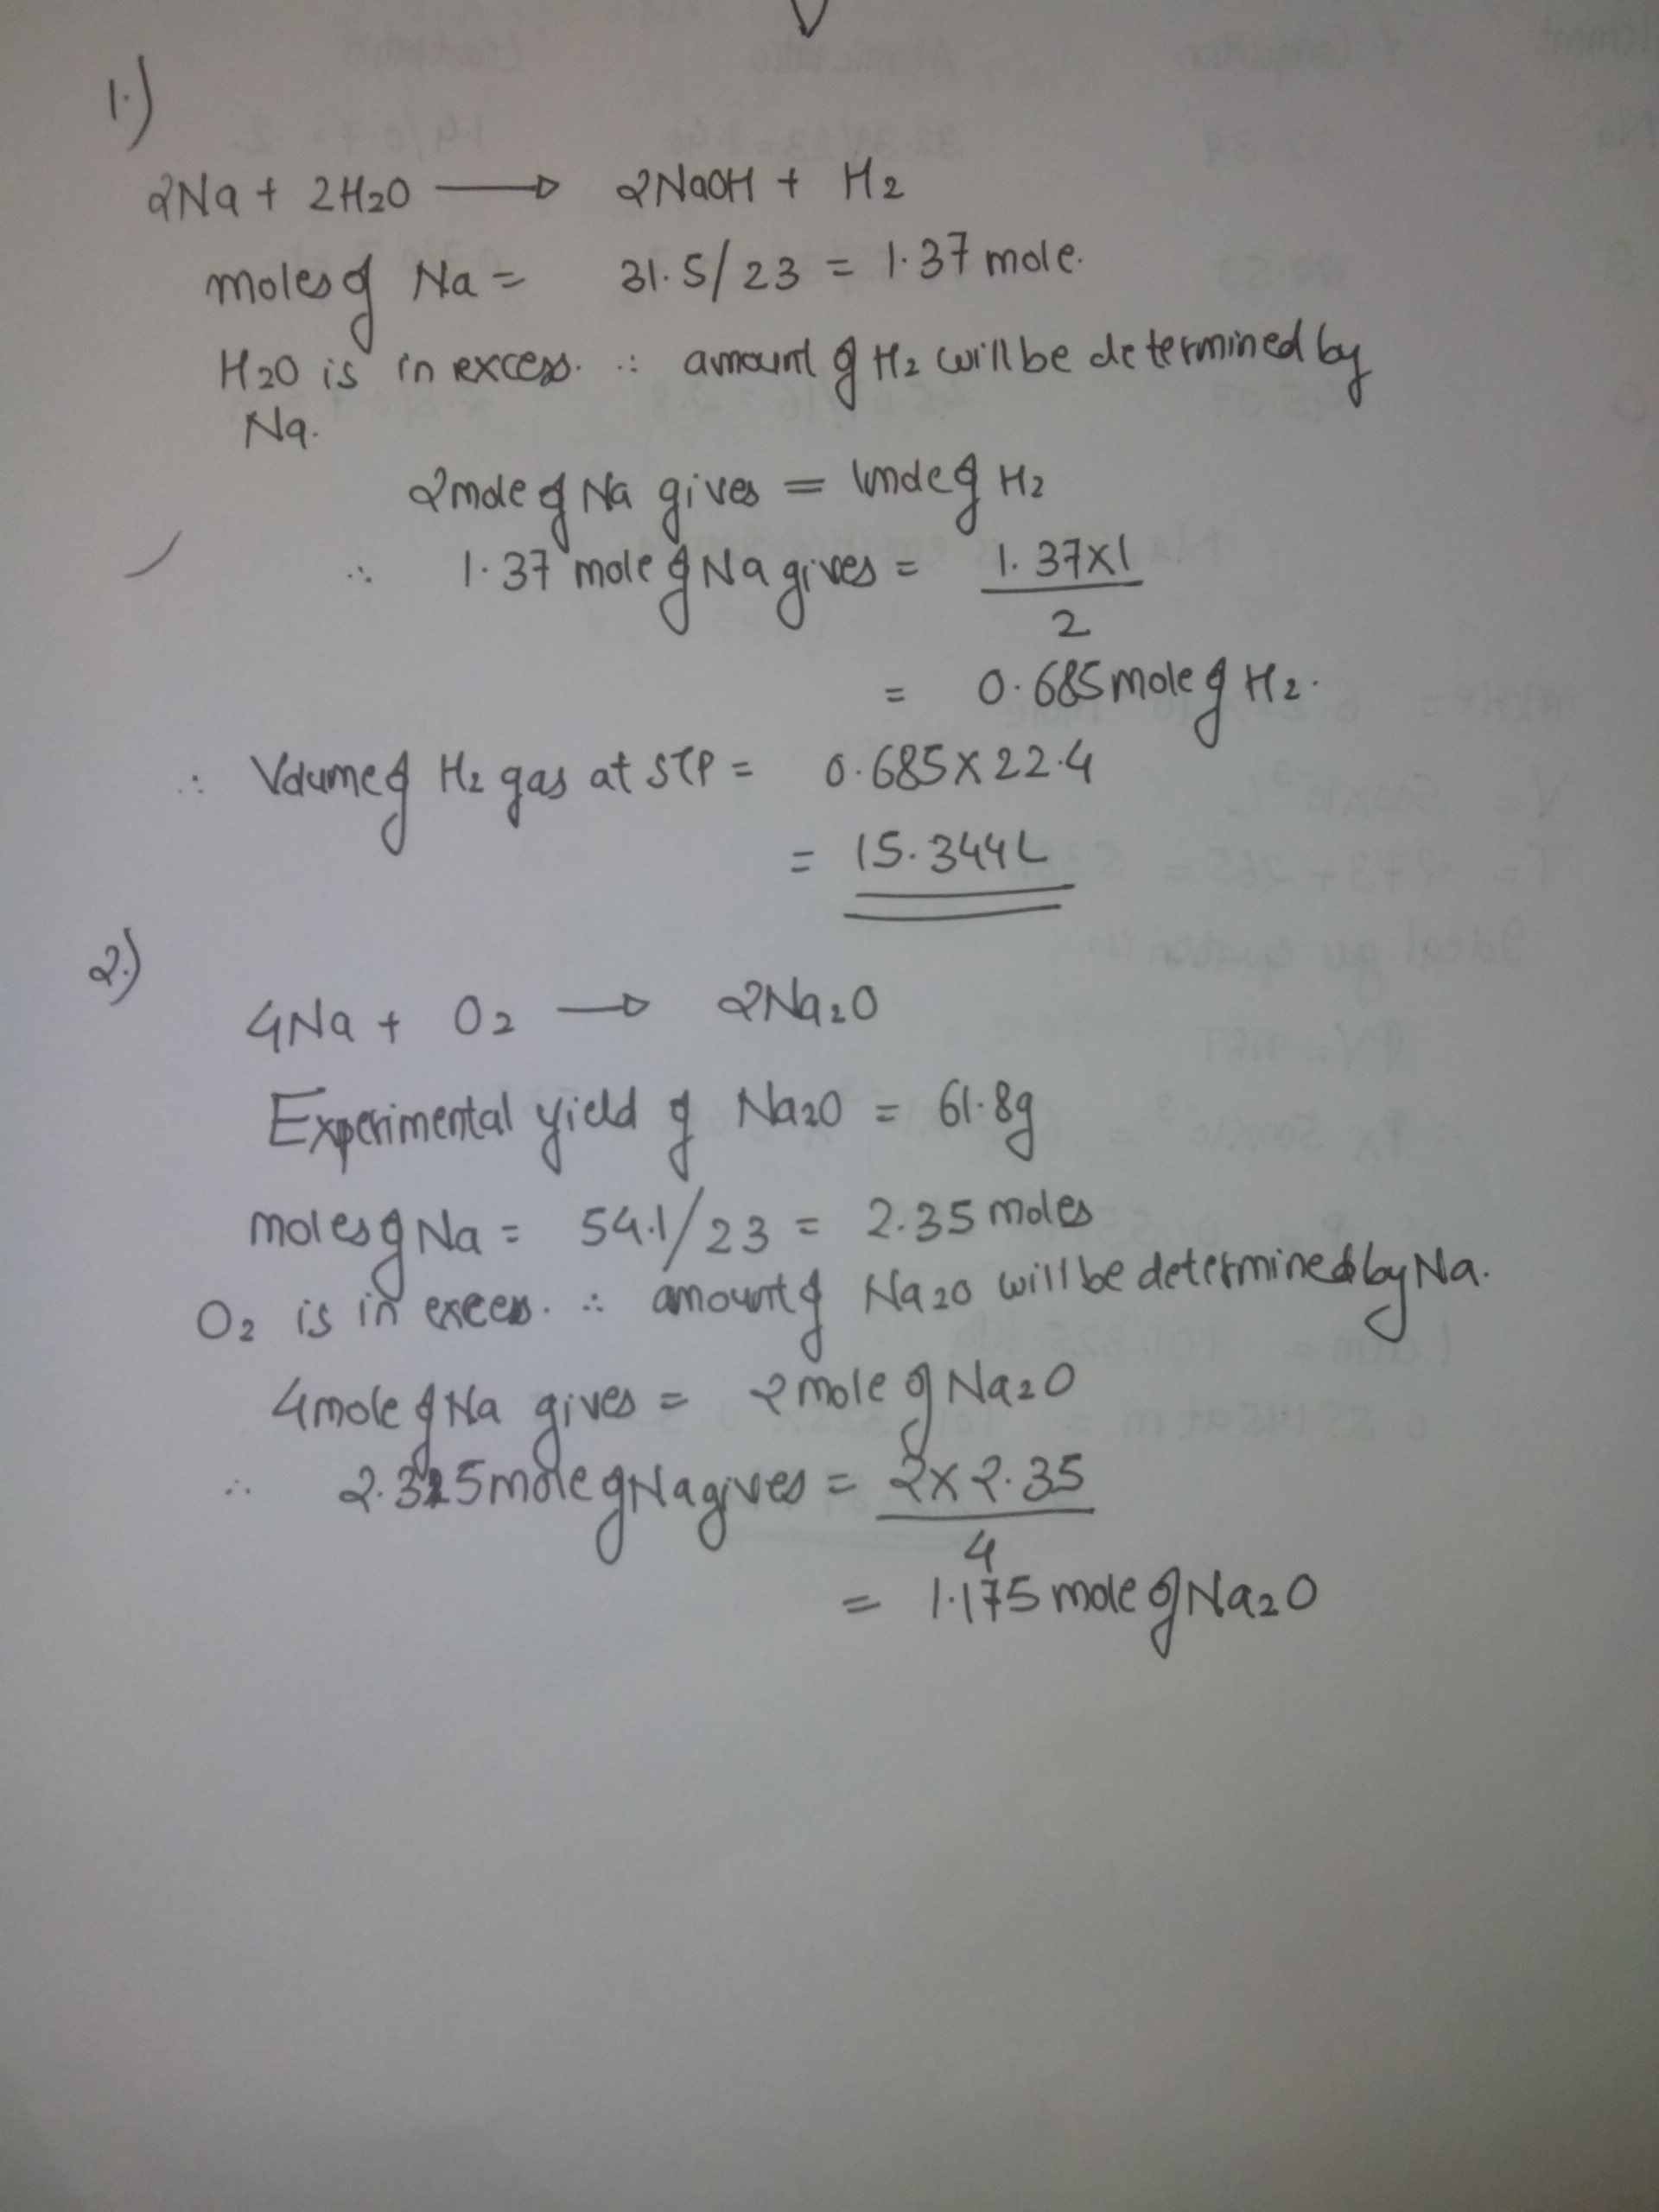 1.)
2Na + 2H2O → 2NaOH + H2
moles of Na = 31.5/23 = 1.37 mole.
H2O is in excess. ∴ amount of H2 will be determined by
Na.
2 mole of Na gives = 1 mole of H2
∴ 1.37 mole of Na gives = 1.37x1
2
= 0.685 mole of H2.
∴ Volume of H2 gas at STP = 0.685x22.4
= 15.344L
2.)
4Na + O2 → 2Na2O
Experimental yield of Na2O = 61.8g
moles of Na = 54.1/23 = 2.35 moles
O2 is in excess. ∴ amount of Na2O will be determined by Na.
4 mole of Na gives = 2 mole of Na2O
∴ mole of Na gives = 2x2.35
4
= 1.175 mole of Na2O